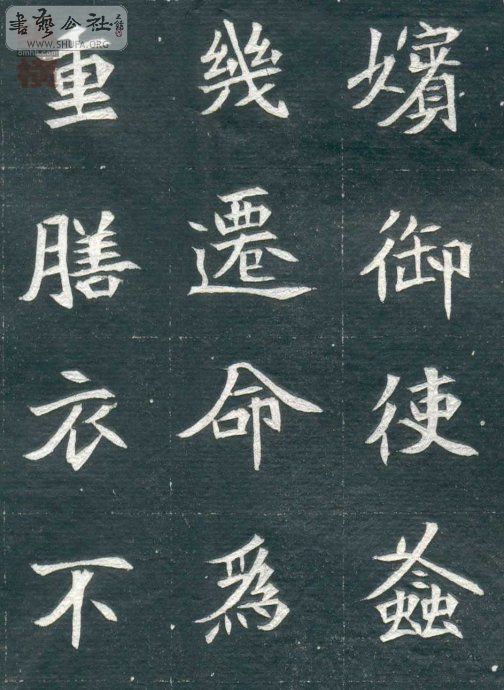 書藝公社
WWW.SHUFA.ORG
嬪御使螽
幾遷命為
重膳衣不